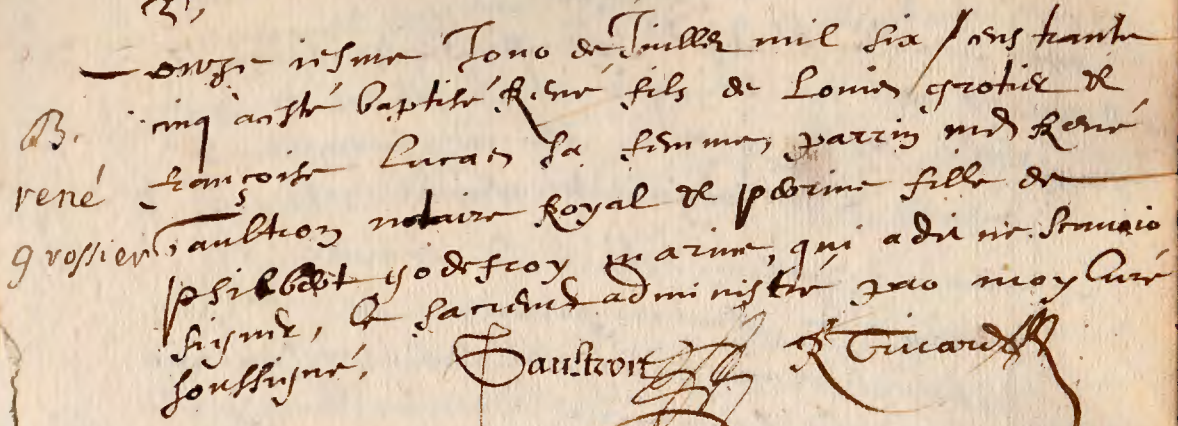 B.
rené
grossier
onzeiesme Jour de Juillet mil six cens trante
cinq a esté baptisé René fils de Louis grotier &
françoise Lucas sa femme, parrin Me René
Gaultron notaire Royal & perrine fille de
philbert godefroy marine, qui a dit ne scavoir
signer, le sacrement administré par moy Curé
soussigné.
Gaultron R Tricard